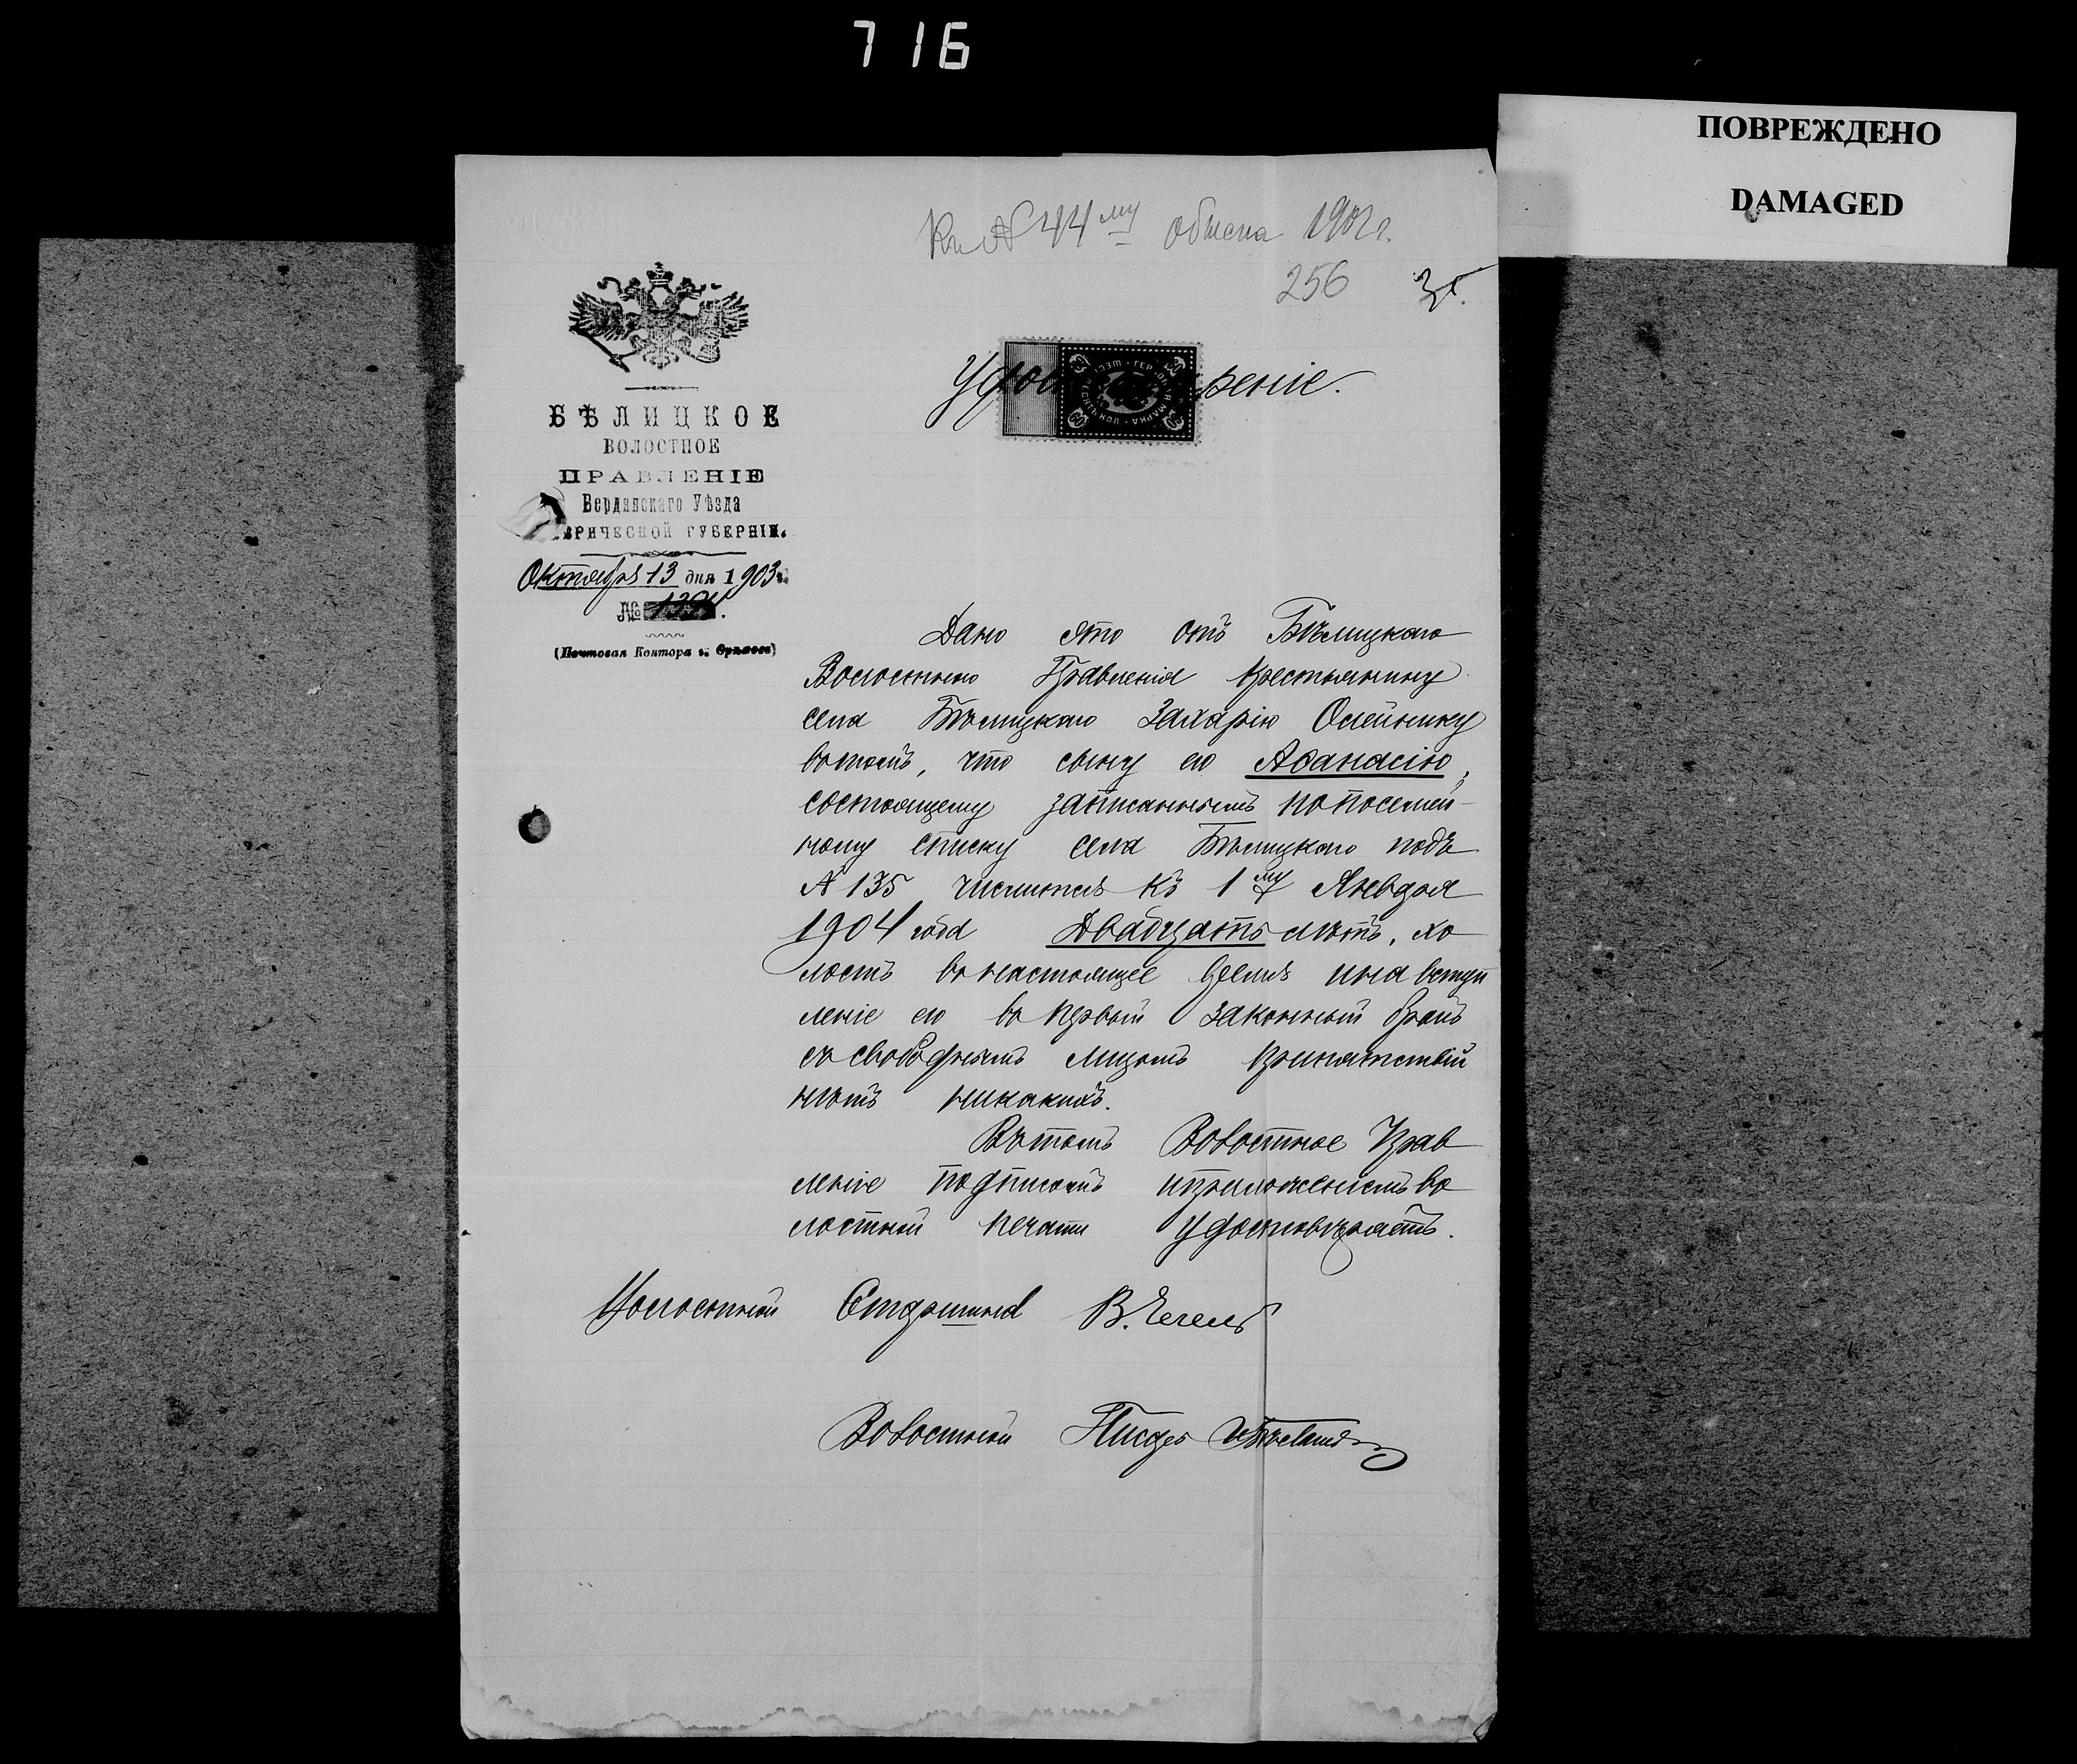 716
ПОВРЕЖДЕНО
DAMAGED
Къ № 44му обыска 1902 г.
256
БѢЛИЦКОЕ
ВОЛОСТНОЕ
ПРАВЛЕНІЕ
Бердянскаго Уѣзда
ВРИЧЕСКОЙ ГУБЕРНІИ.
Октября 13 дня 1903 г.
№
(Почтовая Контора с. Орловъ)
Удо реніе.
Дано это отъ Бѣлицкаго
Волостного Правленія крестьянину
села Бѣлицкаго Захарію Олейнику
въ томъ, что сыну его Афанасію,
состоящему записаннымъ по посемей-
ному списку села Бѣлицкаго подъ
№ 135 числится къ 1му Января
1904 года Двадцать лѣтъ, хо
лостъ въ настоящее время и на вступ
леніе его въ первый законный бракъ
съ свободнымъ лицомъ препятствій
нѣтъ никакихъ.
Въ томъ Волостное Прав
леніе подписомъ и приложеніемъ во
лостной печати удостовѣряетъ.
Волостной Старшина В. Чечель
Волостной Писарь